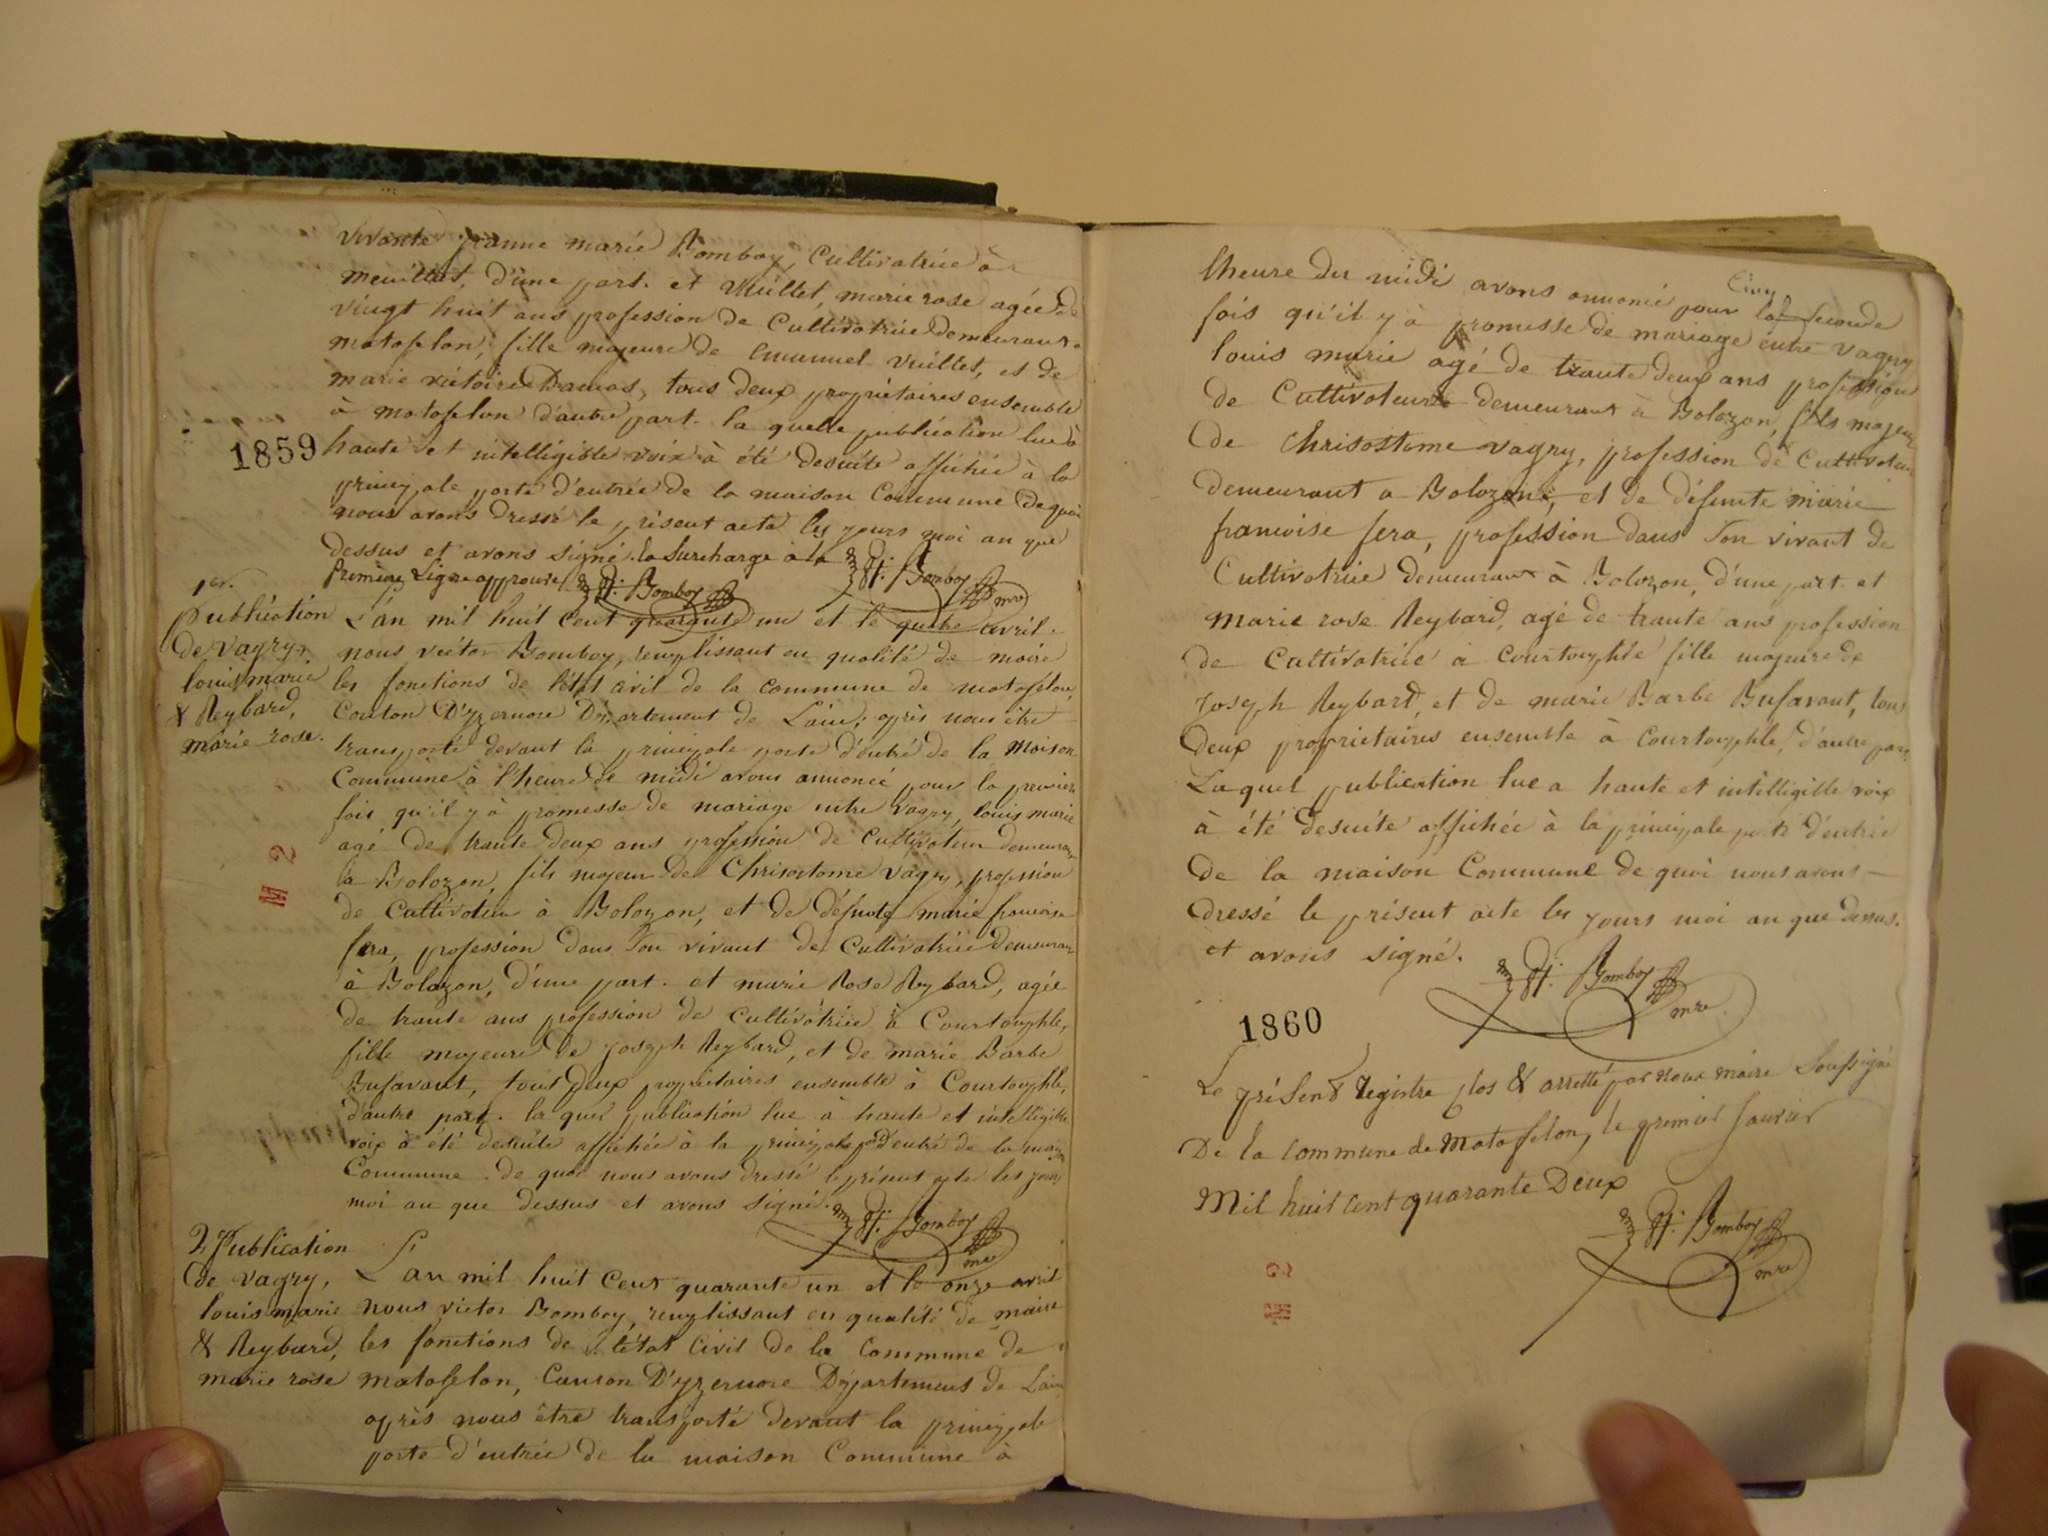 vivante jeanne marie Bomboy, Cultivatrice à
meuillat, d'une part. et Vuillet, marie rose agée de
vingt huit ans profession de Cultivatrice demeurant à
matafelon, fille majeure de Emanuel Vuillet, et de
marie victoire Damas, tous deux propriétaires ensemble
à matafelon d'autre part. la quelle publication lue à
1859
haute et intelligible voix à été desuite affichée à la
principale porte d'entrée de la maison Commune de quoi
nous avons dressé le présent acte les jours moi an que
dessus et avons signé. la Surcharge à la
première Ligne approuvé Vr. Bomboy Vr. Bomboy mre
1er.
Publication
de Vagry,
louis marie
& Reybard,
marie rose.
L'an mil huit cent quarante un et le quatre avril.
nous victor Bomboy, remplissant en qualité de maire
les fonctions de l'état civil de la commune de matafelon,
Canton D'yzernore Département de Lain; après nous être
transporté devant la principale porte d'entré de la Maison
Commune à l'heure de midi avons annoncé pour la première
fois qu'il y à promesse de mariage entre Vagry, louis marie
agé de trante deux ans profession de Cultivateur demeurant
à Bolozon, fils majeur de Chrisostome Vagry, profession
de Cultivateur à Bolozon, et de défunte marie francoise
fera, profession dans Son vivant de Cultivatrice demeurant
à Bolozon, d'une part. et marie Rose Reybard, agée
de trante ans profession de Cultivatrice à Courtouphle,
fille majeure de Joseph Reybard, et de marie Barbe
Bufavant, tout deux propriétaires ensemble à Courtouphle,
d'autre part. la quel publication lue à haute et intelligible
voix à été desuite affichée à la principale pte D'entré de la maison
Commune. de quoi nous avons dressé le présent acte les jours
moi an que dessus et avons signé.
Vr. Bomboy
mre
2 Publication
de Vagry,
louis marie
& Reybard,
marie rose
L'an mil huit Cent quarante un et le onze avril
nous victor Bomboy, remplissant en qualité de maire
les fonctions de l'état Civil de la Commune de
matafelon, Canton D'yzernore Département de Lain
après nous être transporté devant la principale
porte d'entrée de la maison Commune à
lheure du midi avons annoncé pour la seconde
fois qu'il y à promesse de mariage entre Vagry
louis marie agé de trante deux ans profession
de Cultivateur demeurant à Bolozon, fils majeur
de Chrisostome Vagry, profession de Cultivateur
demeurant a Bolozon, et de défunte marie
francoise fera, profession dans Son vivant de
Cultivatrice demeurant à Bolozon, d'une part. et
marie rose Reybard, agé de trante ans profession
de Cultivatrice a Courtouphle fille majeure de
Joseph Reybard, et de marie Barbe Bufavant, tous
deux proprietaires ensemble à Courtouphle, d'autre part
Laquel publication lue a haute et intelligible voix
à été desuite affichée à la principale porte d'entrée
de la maison Commune de quoi nous avons
dressé le présent acte les jours moi an que dessus.
et avons signé.
Vr. Bomboy
mre
1860
Le présent Registre clos & arretté par nous maire Soussigné
De la Commune de Matafelon, le premier Janvier
Mil huit Cent quarante Deux
Vr. Bomboy
mre